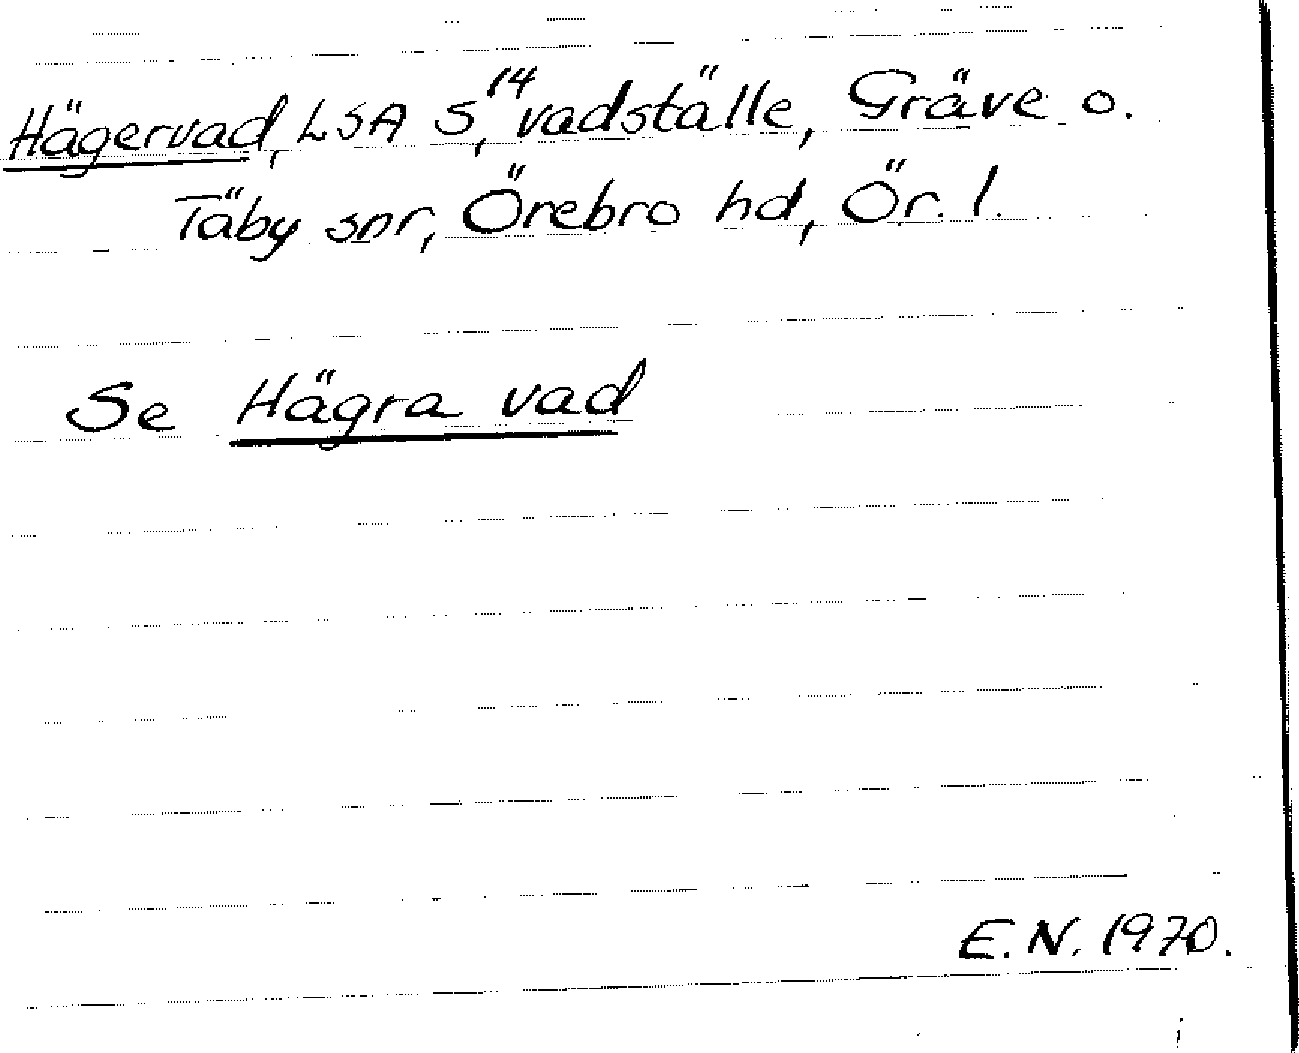 Hägervad, LSA S¹⁴, vadställe, Gräve o.
Täby snr, Örebro hd, Ör. l.
Se Hägra vad
E.N. 1970.